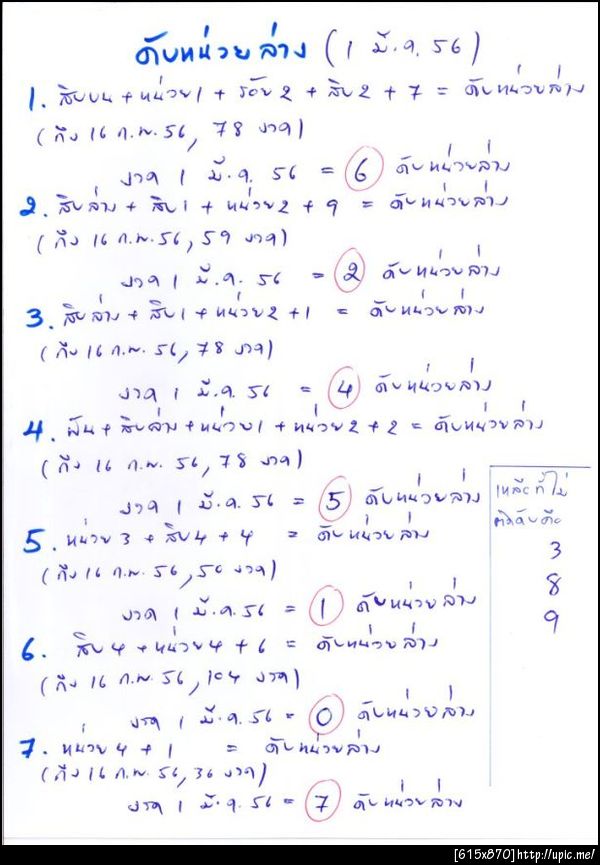 ดับหน่วยล่าง (1 มี.ค. 56)
1. สิบบน + หน่วย1 + ร้อย2 + สิบ2 + 7 = ดับหน่วยล่าง
(ถึง 16 ก.พ. 56, 78 งวด)
งวด 1 มี.ค. 56 = 6 ดับหน่วยล่าง
2. สิบล่าง + สิบ1 + หน่วย2 + 9 = ดับหน่วยล่าง
(ถึง 16 ก.พ. 56, 59 งวด)
งวด 1 มี.ค. 56 = 2 ดับหน่วยล่าง
3. สิบล่าง + สิบ1 + หน่วย2 + 1 = ดับหน่วยล่าง
(ถึง 16 ก.พ. 56, 78 งวด)
งวด 1 มี.ค. 56 = 4 ดับหน่วยล่าง
4. พัน + สิบล่าง + หน่วย1 + หน่วย2 + 2 = ดับหน่วยล่าง
(ถึง 16 ก.พ. 56, 78 งวด)
งวด 1 มี.ค. 56 = 5 ดับหน่วยล่าง
5. หน่วย3 + สิบ4 + 4 = ดับหน่วยล่าง
(ถึง 16 ก.พ. 56, 50 งวด)
งวด 1 มี.ค. 56 = 1 ดับหน่วยล่าง
6. สิบ4 + หน่วย4 + 6 = ดับหน่วยล่าง
(ถึง 16 ก.พ. 56, 104 งวด)
งวด 1 มี.ค. 56 = 0 ดับหน่วยล่าง
7. หน่วย4 + 1 = ดับหน่วยล่าง
(ถึง 16 ก.พ. 56, 36 งวด)
งวด 1 มี.ค. 56 = 7 ดับหน่วยล่าง
เหลือที่ไม่
ติดดับคือ
3
8
9
[615x870]http://upic.me/